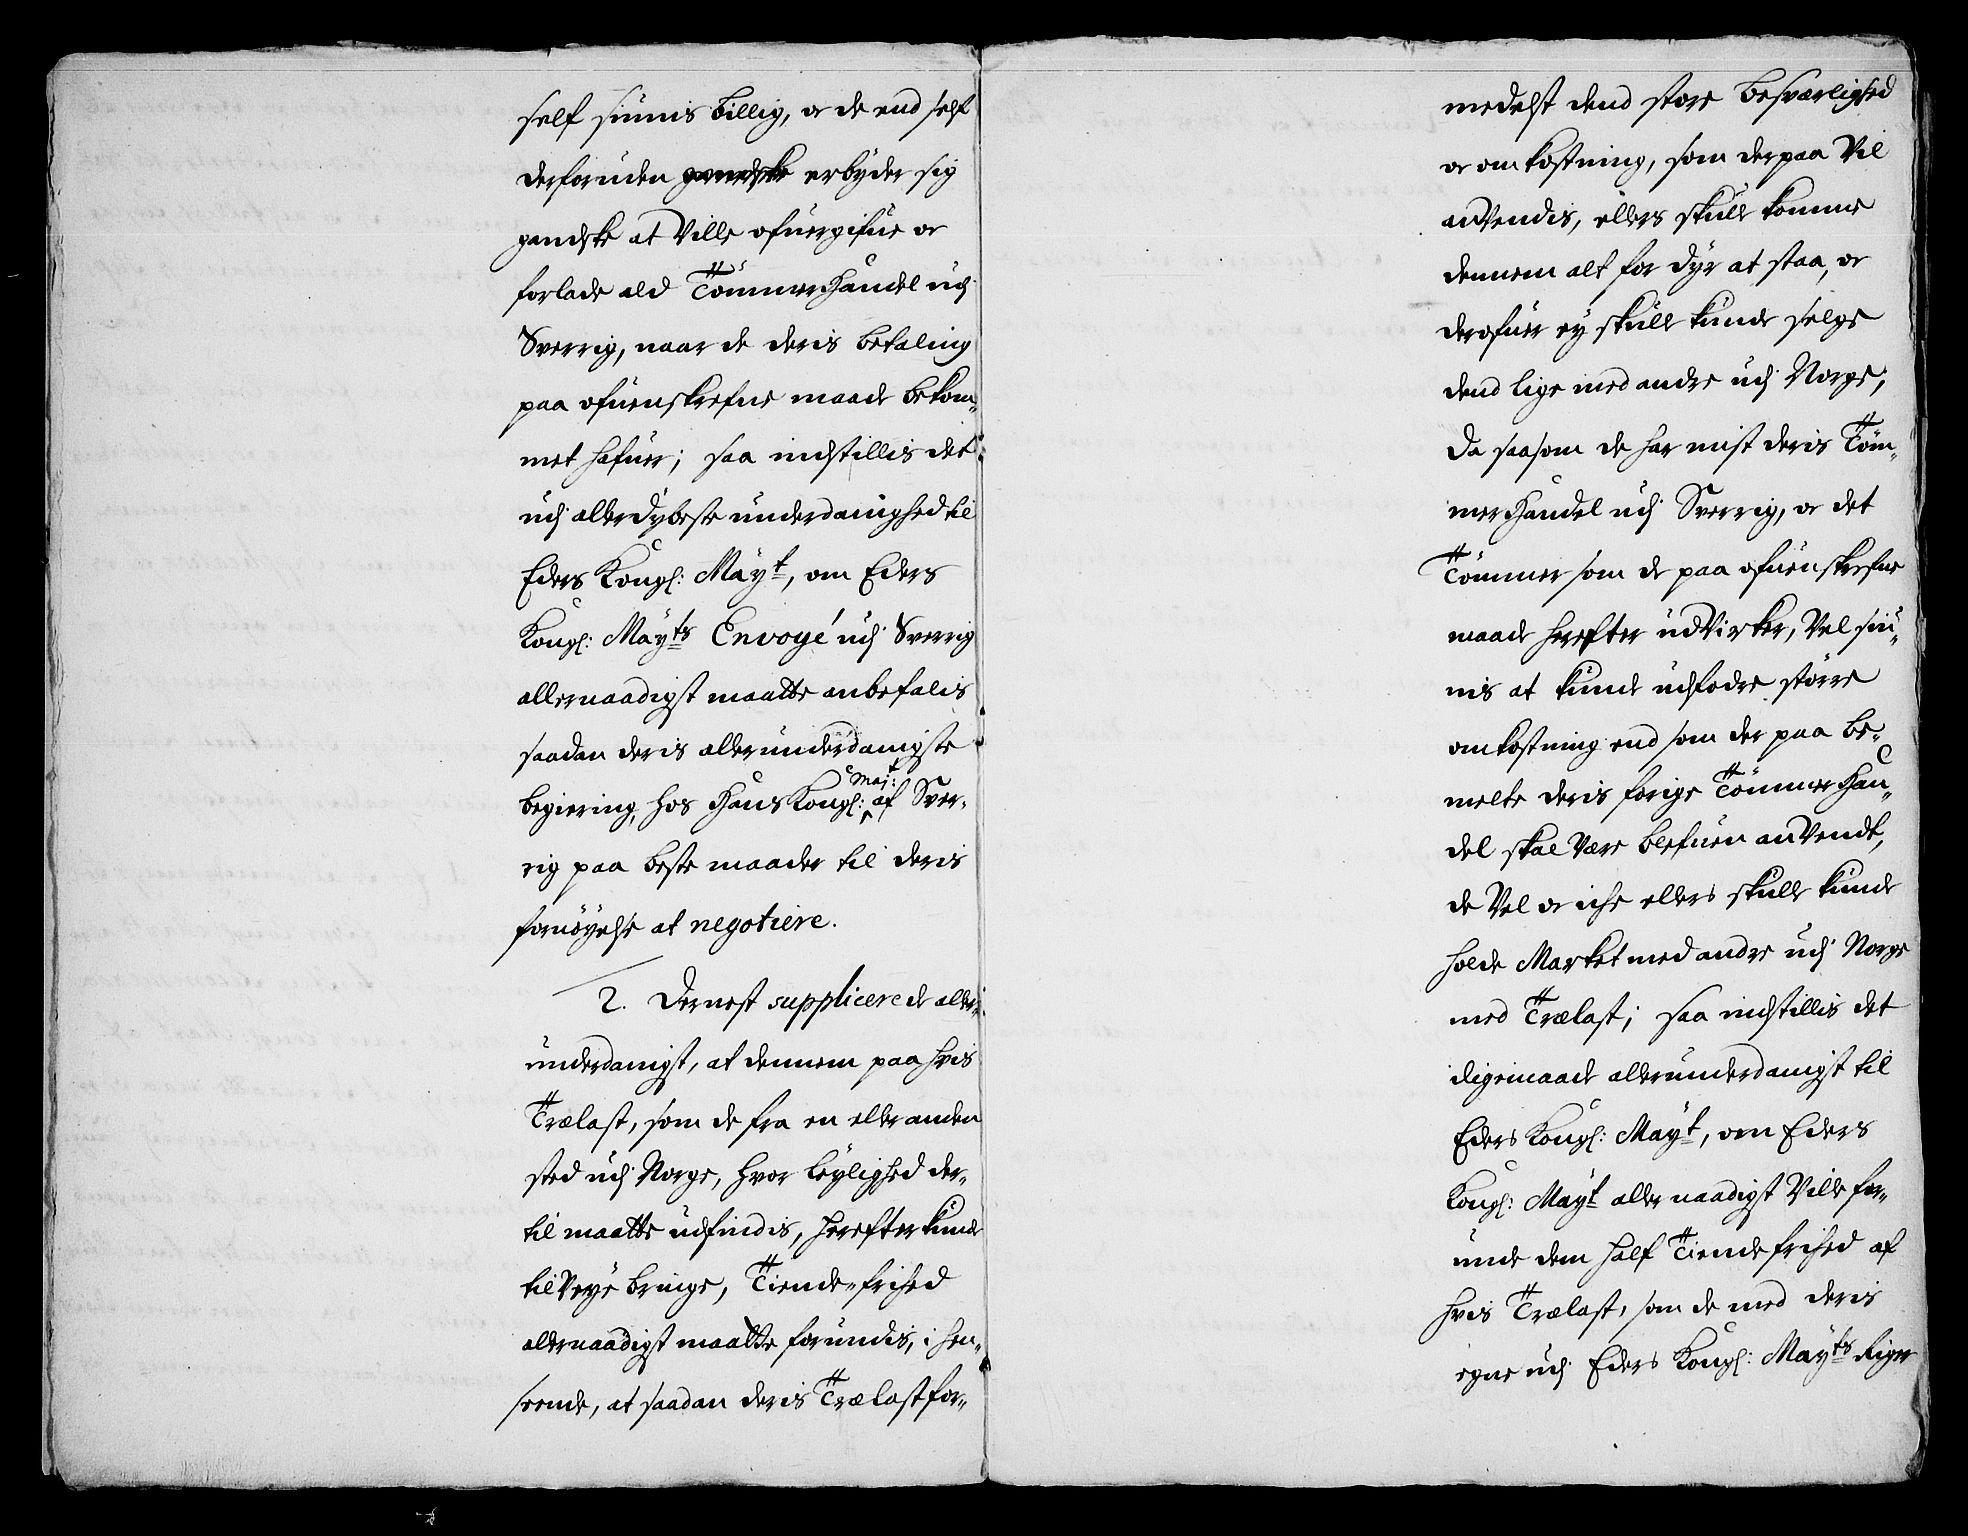 self siunis billig, oc de end self
derforuden gandske erbyder sig
gandske at Ville ofuergifue oc
forlade ald Tömmer Handel udj
Sverrig, naar de deris betaling
paa ofuenskrefne maade bekom„
met hafuer; saa indstillis det
udj allerdybeste underdanighed til
Eders Kongl: Mayt, om Eders
Kongl: Mayts Envoyé udj Sverrig
allernaadigst maatte anbefalis
saadan deris allerunderdanigste
begiering, hos Hans Kongl: Maj:t af Sver„
rig paa beste maader til deris
fornöyelse at negotiere.
2. Dernest supplicere de aller„
underdanigst, at dennem paa hvis
Trælast, som de fra en eller anden
sted udj Norge, hvor leylighed der„
til maatte udfindis, herefter kunde
tilVeye bringe, Tiende„frihed
allernaadigst maatte forundis, i hen„
seende, at saadan deris Trælast for„
medelst dend store besværlighed
oc omkostning, som derpaa Vil
anVendis, ellers skulle komme
dennem alt for dyr at staa, oc
derofuer ey skulle kunde selge
dend lige med andre udj Norge,
Da saasom de har mist deris Töm„
mer Handel udj Sverrig, oc det
Tömmer som de paa ofuenskrefne
maade herefter udVirker, Vel siu„
nis at kunde udfodre större
omkostning end som der paa be„
melte deris forige Tömmer Han„
del skal Være blefuen anVendt,
de Vel oc iche ellers skulle kunde
holde Market med andre udj Norge
med Trælast; saa indstillis det
ligemaade allerunderdanigst til
Eders Kongl: Mayt, om Eders
Kongl: Mayt allernaadigst Ville for„
unde dem half Tiendefrihed af
hvis Trælast, som de med deris
egne udj Eders Kongl: Mayts Riger